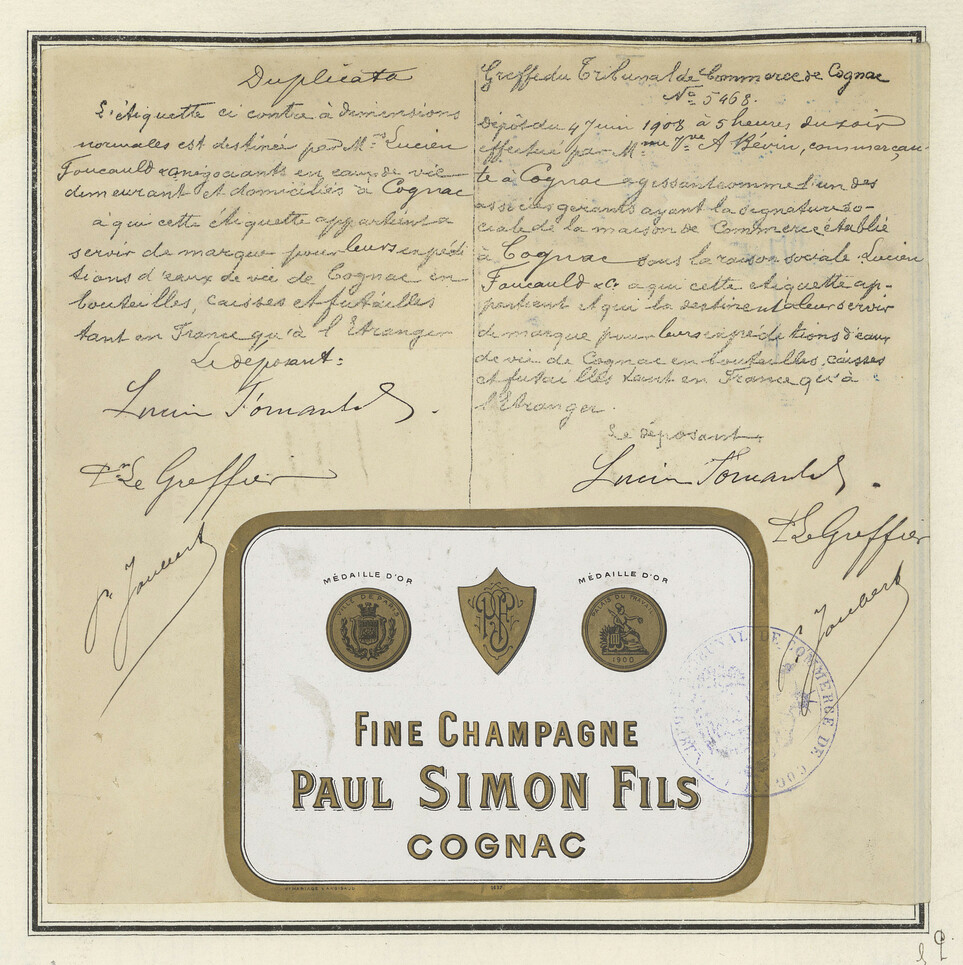 Duplicata
L'étiquette ci contre à dimensions
normales est destinée par Mr. Lucien
Foucauld & Co négociants en eaux de vie
demeurant et domiciliés à Cognac
à qui cette étiquette appartient a
servir de marque pour leurs expédi
tions d'eaux de vie de Cognac en
bouteilles, caisses et futailles
tant en France qu'à l'Etranger
Le déposant:
Lucien Foucauld
Pr. Le Greffier
Joubert
Greffe du Tribunal de Commerce de Cognac
No. 5468.
Dépôt du 4 juin 1908 à 5 heures du soir
effectué par Mme Vve A Bévin, commerçan-
te à Cognac agissant comme l'un des
associés gerants ayant la signature so-
ciale de la maison de Commerce établie
à Cognac sous la raison sociale Lucien
Foucauld & Co a qui cette étiquette ap-
partient et qui la destinent a leur servir
de marque pour leurs expéditions d'eaux
de vie de Cognac en bouteilles, caisses
et futailles tant en France qu'à
l'Etranger.
Le déposant,
Lucien Foucauld
Pr Le Greffier
Joubert
MÉDAILLE D'OR
MÉDAILLE D'OR
VILLE DE PARIS
PALAIS DU TRAVAIL
1900
FINE CHAMPAGNE
PAUL SIMON FILS
COGNAC
TRIBUNAL DE COMMERCE DE COGNAC